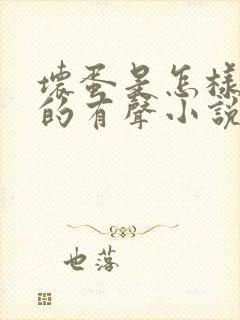 壞蛋是怎樣
的有聲小說
也落